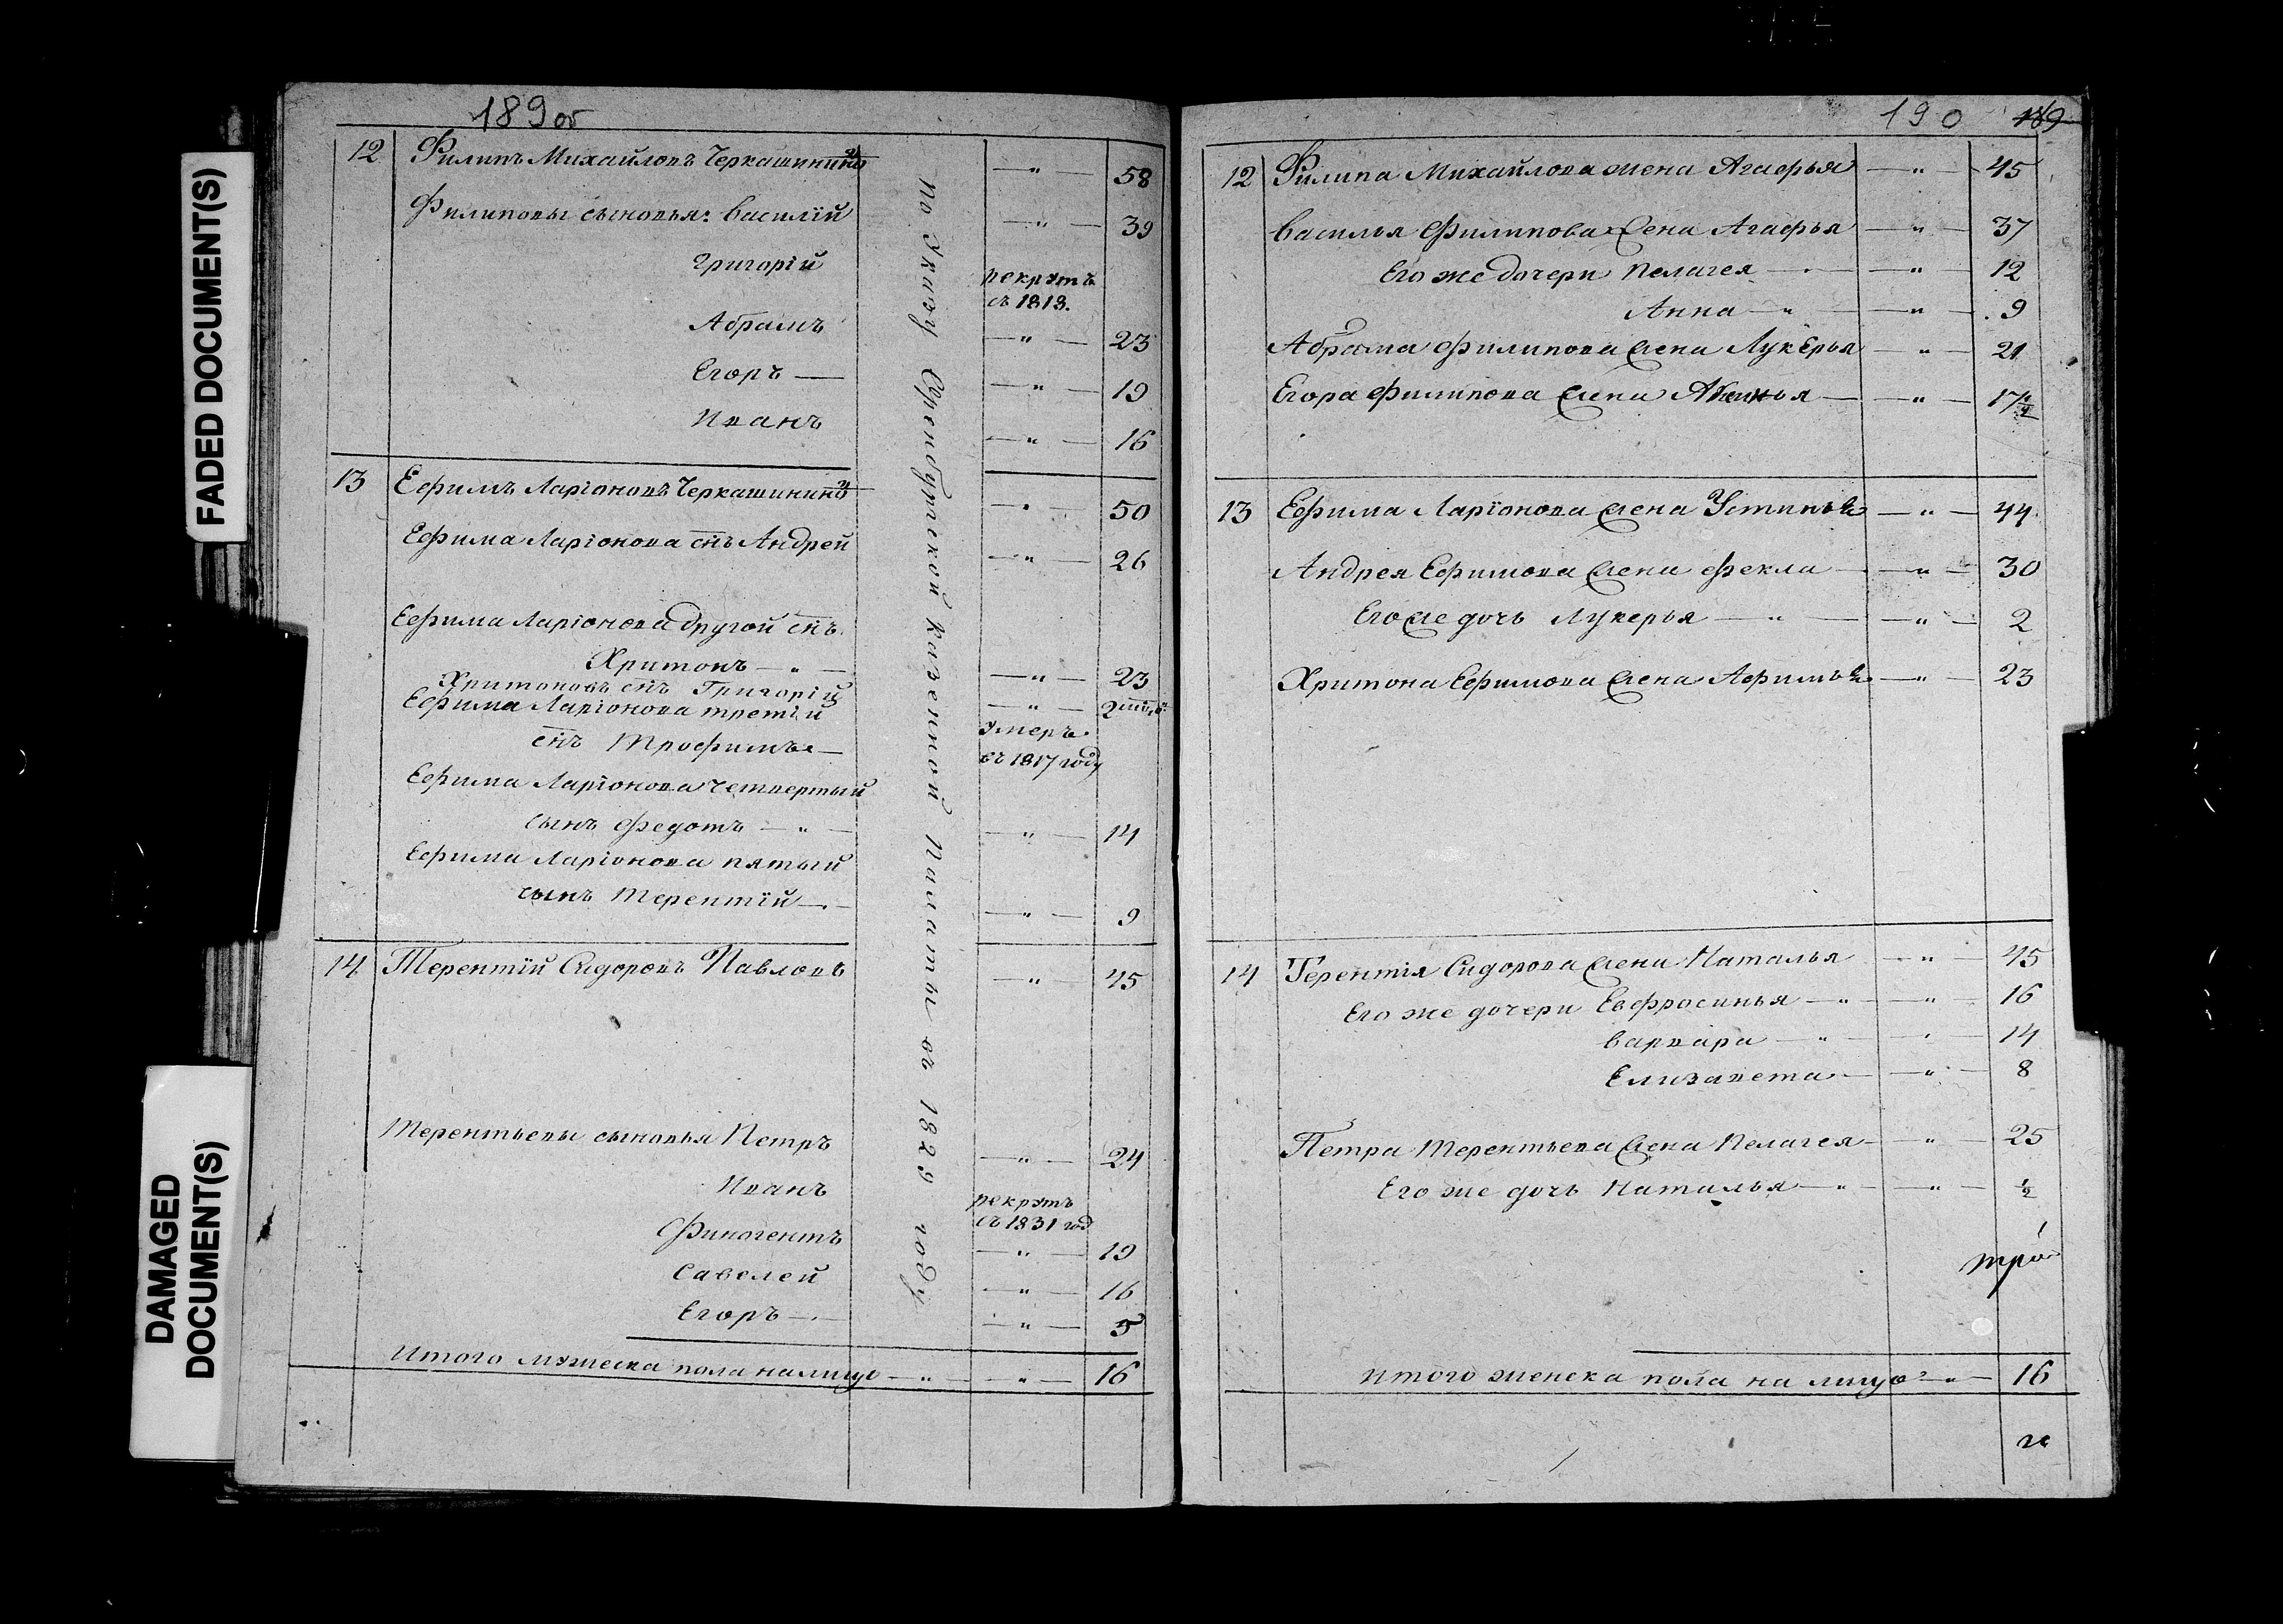 FADED DOCUMENT(S)
DAMAGED
DOCUMENT(S)
189 об
12 Филипъ Михайловъ Черкашининъ — " — 58
Филиповы сыновья: Василій — " — 39
Григорій рекрутъ
съ 1818.
Абрамъ — " — 23
Егоръ — — " — 19
Иванъ — " — 16
13 Ефимъ Ларіоновъ Черкашининъ — " — 50
Ефима Ларіонова снъ Андрей — " — 26
Ефима Ларіонова другой снъ
Хритонъ — " — — " — 23
Хритоновъ снъ Григорій — " — 2
Ефима Ларіонова третій умеръ
снъ Трофимъ — въ 1817 году
Ефима Ларіонова четвертый
сынъ Федотъ — " — — " — 14
Ефима Ларіонова пятый
сынъ Терентій — — " — 9
14 Терентій Сидоровъ Павловъ — " — 45
Терентьевы сыновья Петръ — " — 24
Иванъ рекрутъ
съ 1831 год
Финогентъ — " — 19
Савелей — " — 16
Егоръ — — " — 5
Итого мужеска пола налицо — " — — " — 16
по Указу Оренбургской Казенной Палаты въ 1829 году
190 189
12 Филипа Михайлова жена Агафья — " — 45
Василья Филипова жена Агафья — " — 37
Его же дочери Пелагея — — " — 12
Анна — " — — " — 9
Абрама Филипова жена Лукерья — " — 21
Егора Филипова жена — " — 17
13 Ефима Ларіонова жена Устинья — " — 44
Андрея Ефимова жена Фекла — — " — 30
Его же дочь Лукерья — " — — " — 2
Хритона Ефимова жена Афимья — " — 23
14 Терентія Сидорова жена Наталья — " — 45
Его же дочери Евфросинья — " — — " — 16
Варвара — " — — " — 14
Елизавета — — " — 8
Петра Терентьева жена Пелагея — — " — 25
Его же дочь Наталья — " — — " — ½
Итого женска пола на лицо — " — 16